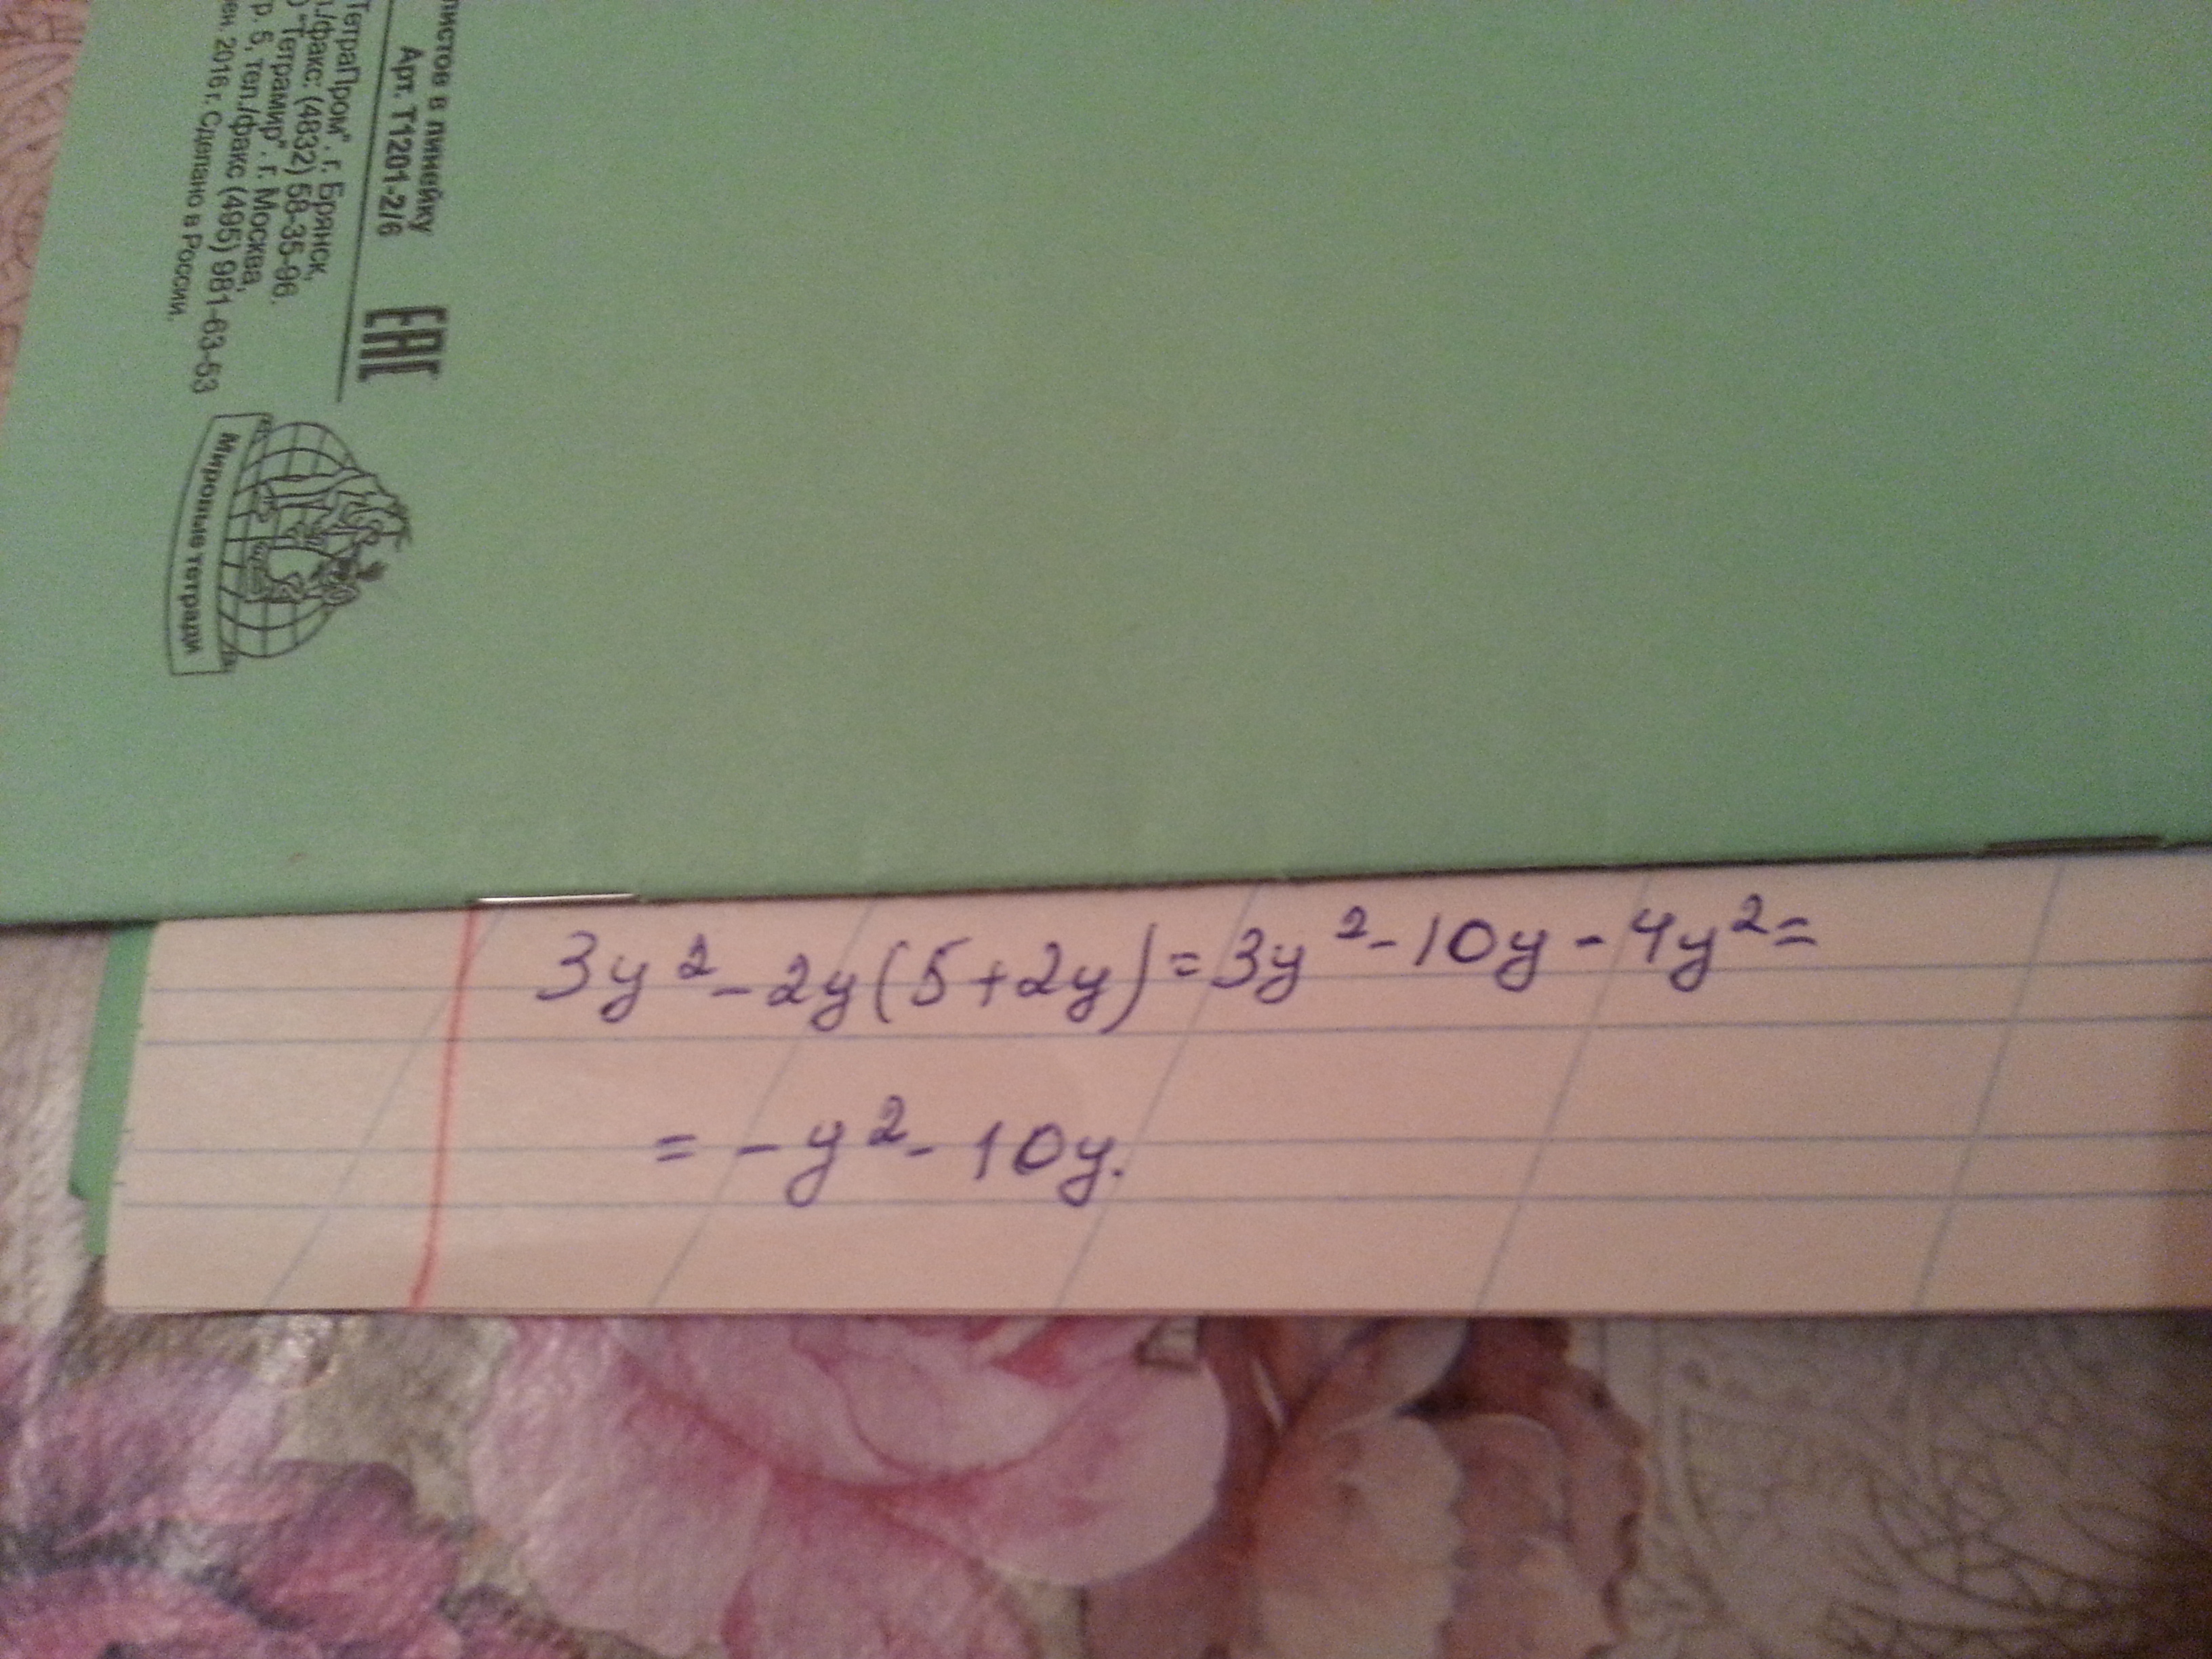 листов в линейку
Арт. Т1201-2/6
ЕАС
"ТетраПром", г. Брянск,
./факс: (4832) 58-35-96.
"Тетрамир", г. Москва,
р. 5, тел./факс (495) 981-63-53
2016 г. Сделано в России.
Мировые тетради
3y² - 2y(5+2y) = 3y² - 10y - 4y² =
= -y² - 10y.